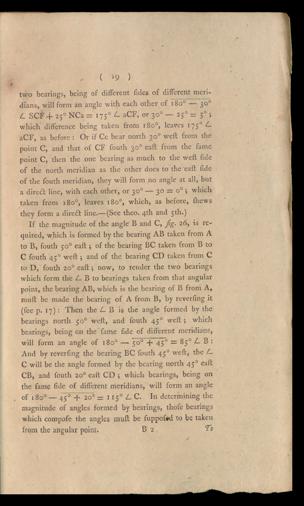 ( 19 )
two bearings, being of different ſides of different meri-
dians, will form an angle with each other of 180° — 30°
∠ SCF + 25° NCa = 175° ∠ aCF, or 30° — 25° = 5° ;
which difference being taken from 180°, leaves 175° ∠
aCF, as before: Or if Cc bear north 30° weſt from the
point C, and that of CF ſouth 30° eaſt from the ſame
point C, then the one bearing as much to the weſt ſide
of the north meridian as the other does to the eaſt ſide
of the ſouth meridian, they will form no angle at all, but
a direct line, with each other, or 30° — 30 = 0° ; which
taken from 180°, leaves 180°, which, as before, ſhews
they form a direct line.—(See theo. 4th and 5th.)
If the magnitude of the angle B and C, fig. 26, is re-
quired, which is formed by the bearing AB taken from A
to B, ſouth 50° eaſt ; of the bearing BC taken from B to
C ſouth 45° weſt ; and of the bearing CD taken from C
to D, ſouth 20° eaſt ; now, to render the two bearings
which form the ∠ B to bearings taken from that angular
point, the bearing AB, which is the bearing of B from A,
muſt be made the bearing of A from B, by reverſing it
(ſee p. 17) : Then the ∠ B is the angle formed by the
bearings north 50° weſt, and ſouth 45° weſt ; which
bearings, being on the ſame ſide of different meridians,
will form an angle of 180° — 50° + 45° = 85° ∠ B :
And by reverſing the bearing BC ſouth 45° weſt, the ∠
C will be the angle formed by the bearing north 45° eaſt
CB, and ſouth 20° eaſt CD ; which bearings, being on
the ſame ſide of different meridians, will form an angle
of 180° — 45° + 20° = 115° ∠ C. In determining the
magnitude of angles formed by bearings, thoſe bearings
which compoſe the angles muſt be ſuppoſed to be taken
from the angular point. B 2 To